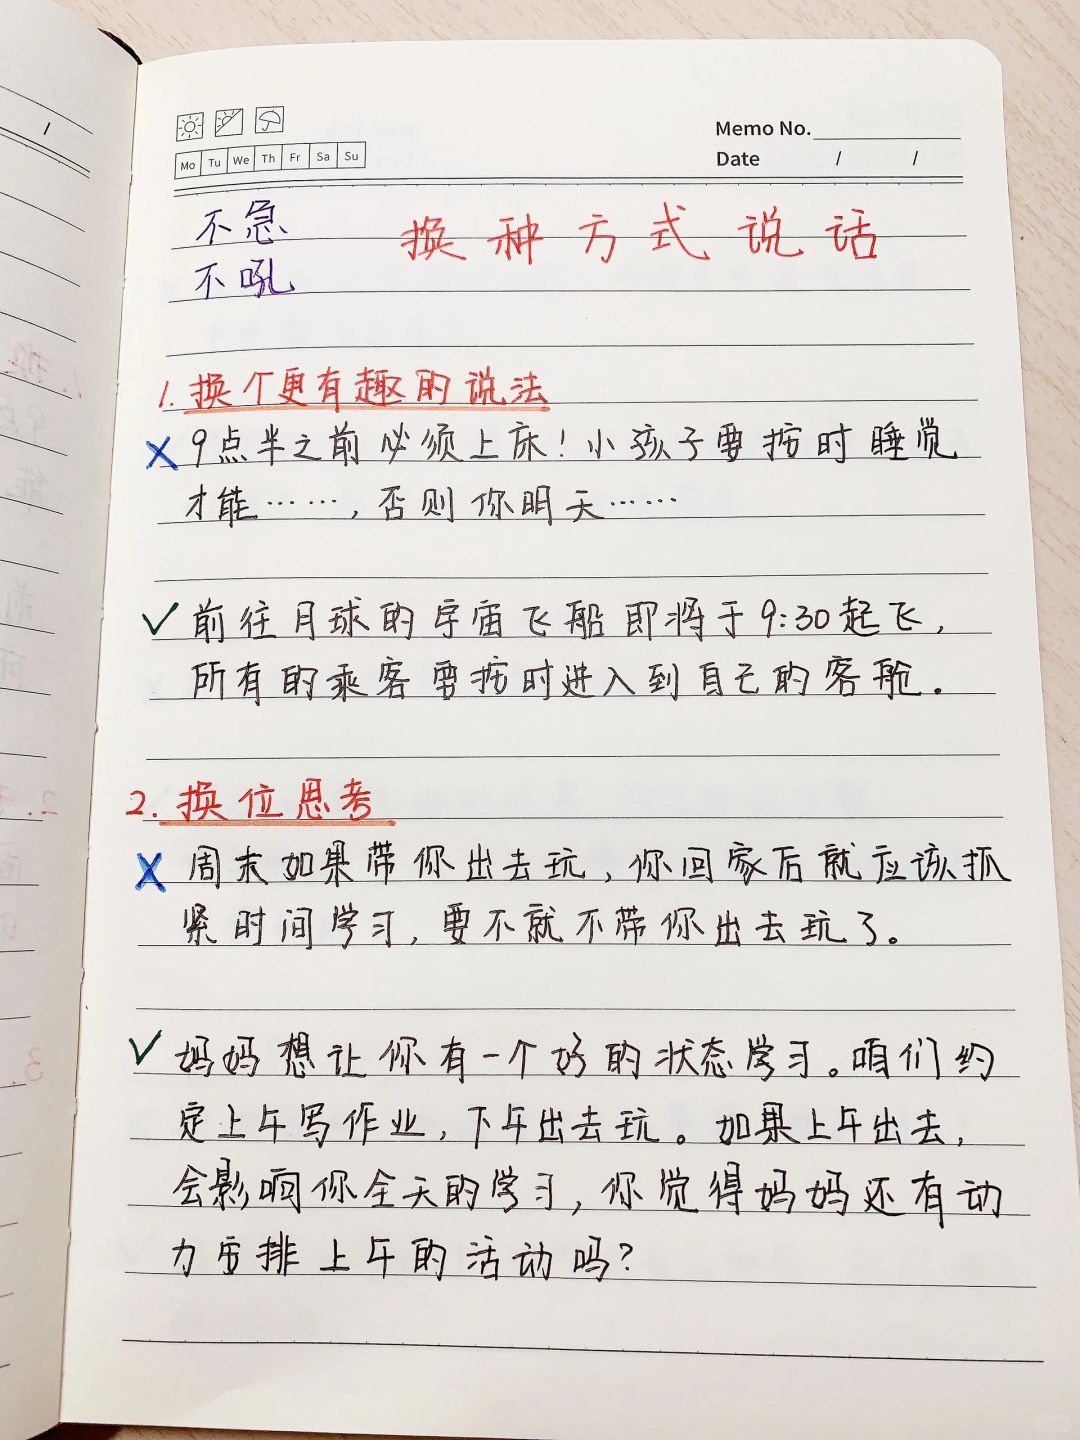 Memo No.
Mo Tu We Th Fr Sa Su
Date / /
不急
换种方式说话
不吼
1.换个更有趣的说法
X 9点半之前必须上床!小孩子要按时睡觉
才能……,否则你明天……
✓ 前往月球的宇宙飞船即将于9:30起飞,
所有的乘客要按时进入到自己的客舱.
2.换位思考
X 周末如果带你出去玩,你回家后就应该抓
紧时间学习,要不就不带你出去玩了。
✓ 妈妈想让你有一个好的状态学习。咱们约
定上午写作业,下午出去玩。如果上午出去,
会影响你全天的学习,你觉得妈妈还有动
力安排上午的活动吗?